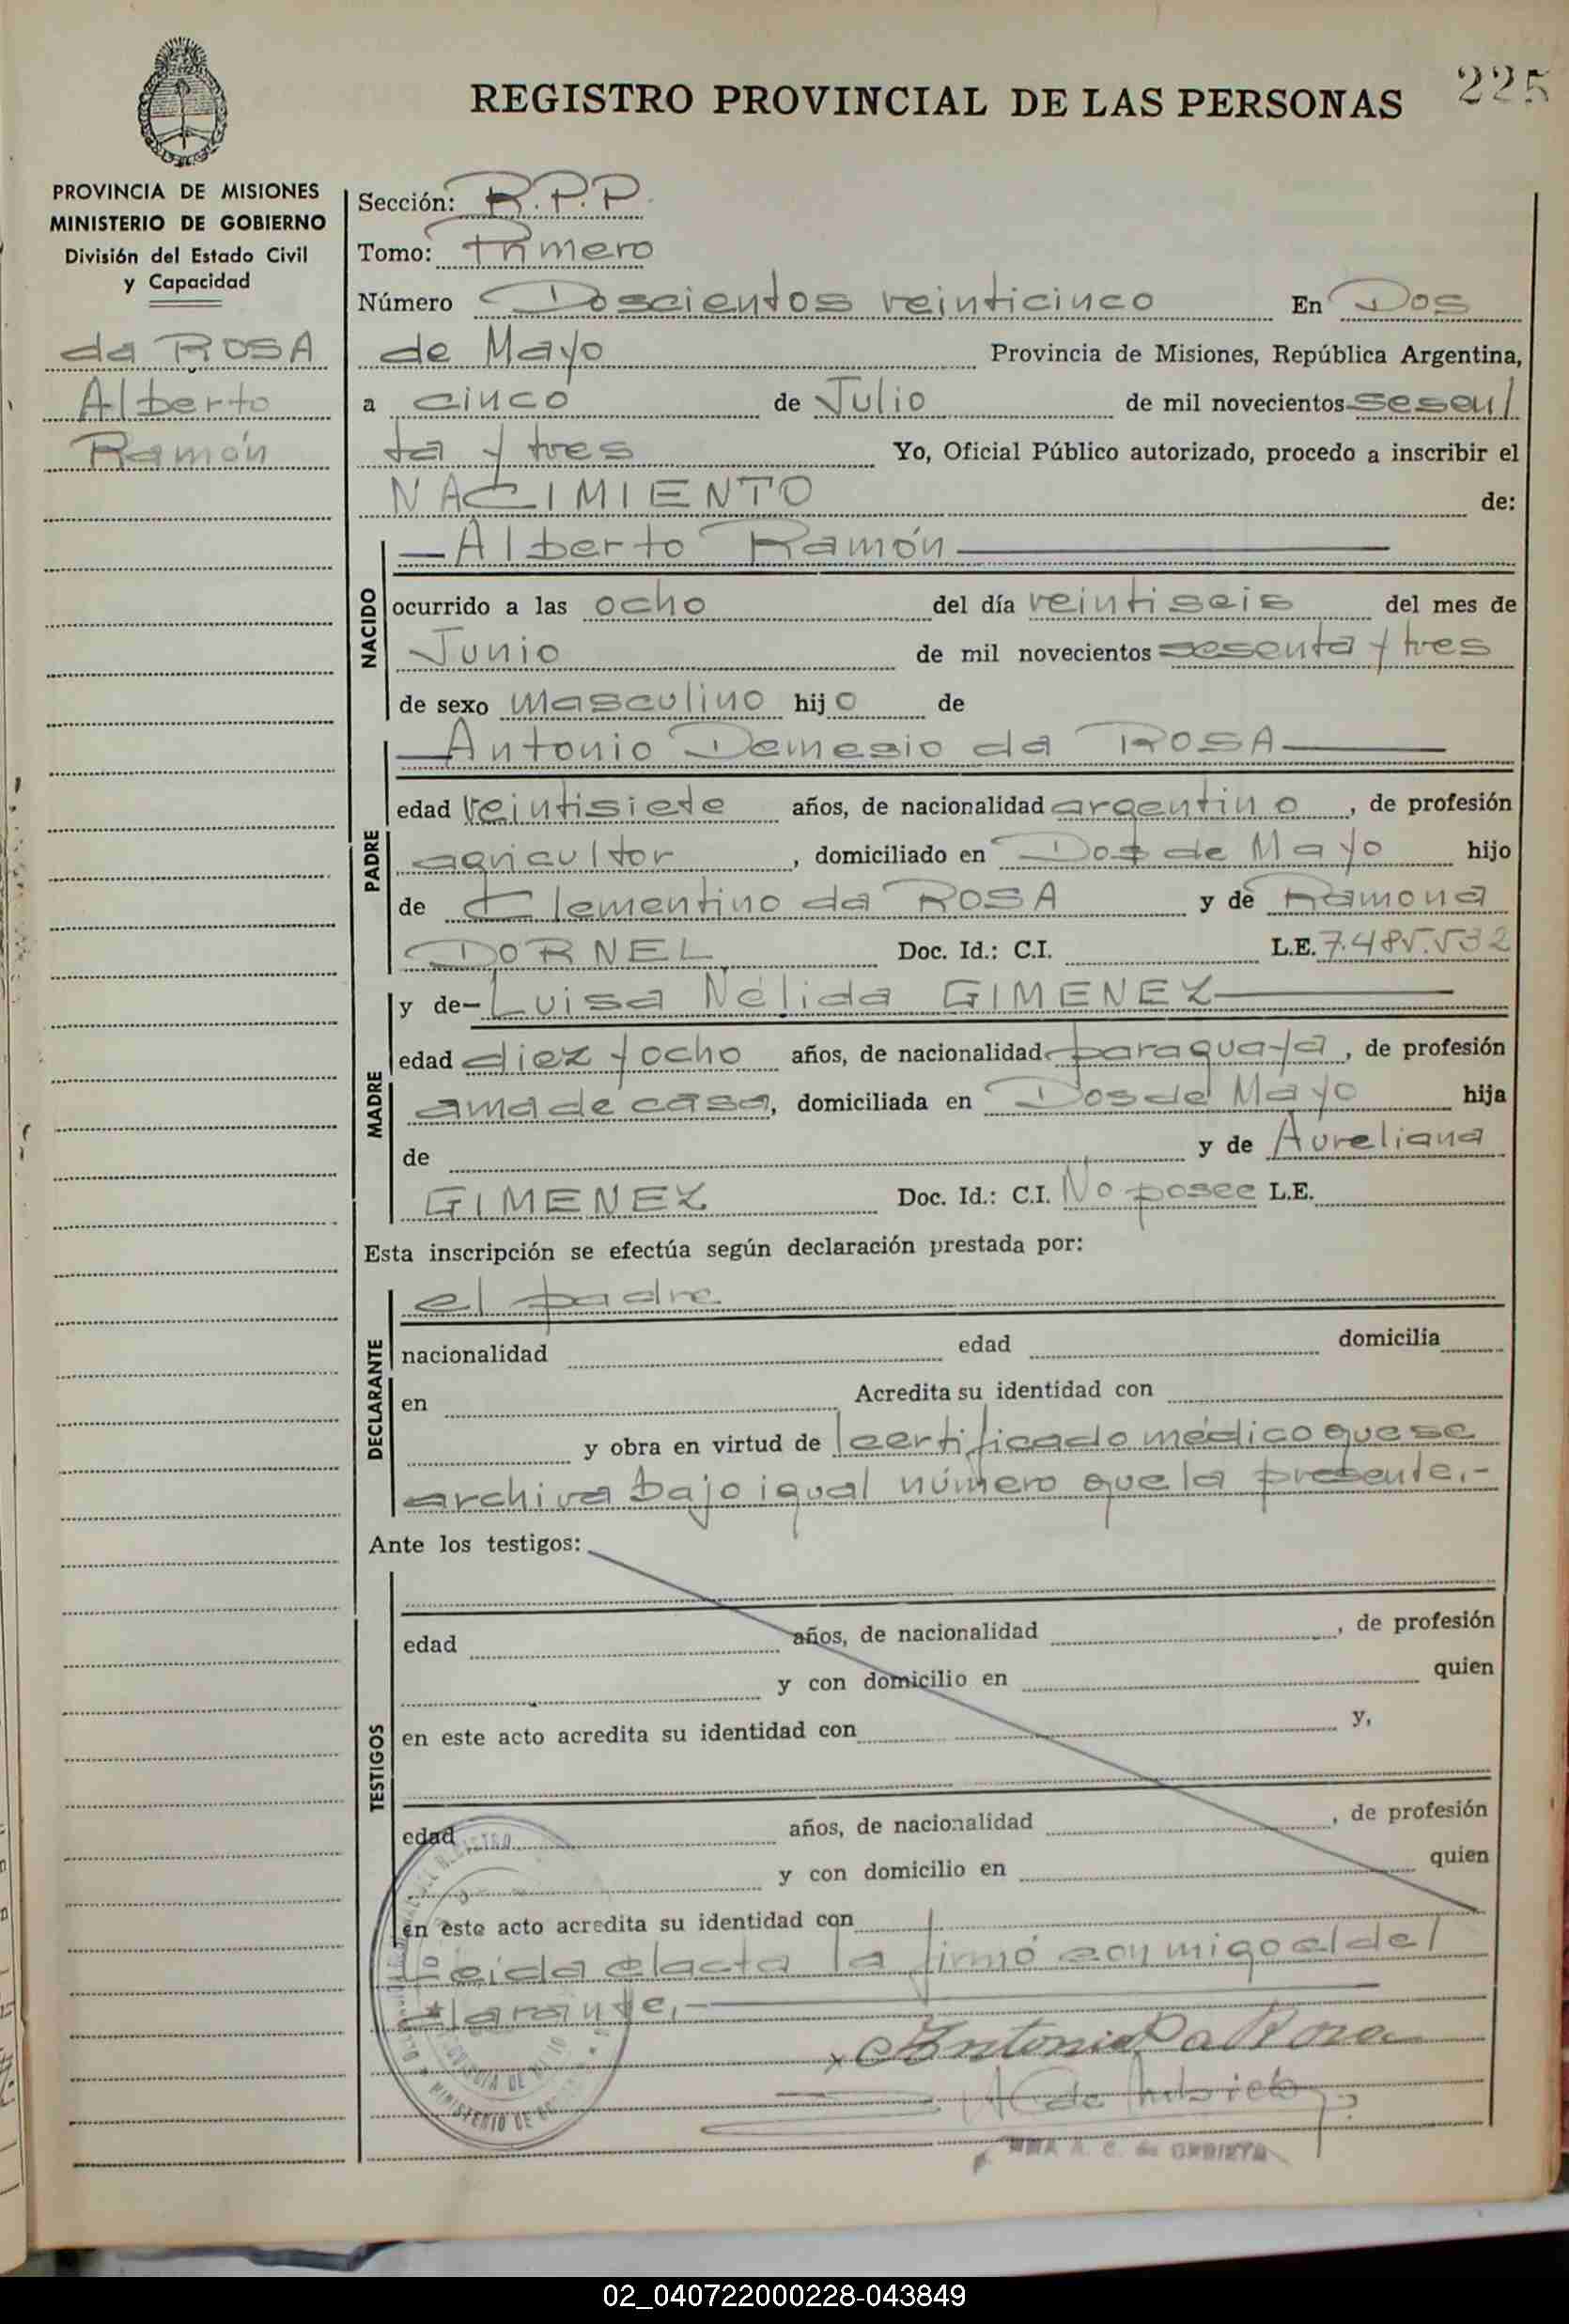 REGISTRO PROVINCIAL DE LAS PERSONAS
225
PROVINCIA DE MISIONES
MINISTERIO DE GOBIERNO
División del Estado Civil
y Capacidad
da ROSA
Alberto
Ramón
Sección: R.P.P.
Tomo: Primero
Número Doscientos veinticinco En Dos
de Mayo Provincia de Misiones, República Argentina,
a cinco de Julio de mil novecientos sesen/
ta y tres Yo, Oficial Público autorizado, procedo a inscribir el
NACIMIENTO de:
NACIDO
— Alberto Ramón —
ocurrido a las ocho del día veintiseis del mes de
Junio de mil novecientos sesenta y tres
de sexo masculino hijo de
PADRE
— Antonio Demesio da ROSA —
edad veintisiete años, de nacionalidad argentino, de profesión
agricultor, domiciliado en Dos de Mayo hijo
de Clementino da ROSA y de Ramona
DORNEL Doc. Id.: C.I. L.E. 7.485.532
MADRE
y de- Luisa Nélida GIMENEZ —
edad diez y ocho años, de nacionalidad paraguaya, de profesión
ama de casa, domiciliada en Dos de Mayo hija
de y de Aureliana
GIMENEZ Doc. Id.: C.I. No posee L.E.
Esta inscripción se efectúa según declaración prestada por:
DECLARANTE
el padre
nacionalidad edad domicilia
en Acredita su identidad con
y obra en virtud de certificado médico que se
archiva bajo igual número que la presente.-
Ante los testigos:
TESTIGOS
edad años, de nacionalidad , de profesión
y con domicilio en quien
en este acto acredita su identidad con y,
edad años, de nacionalidad , de profesión
y con domicilio en quien
en este acto acredita su identidad con
Leída el acta la firmó conmigo el de/
clarante.-
x Antonio Da Rosa
A. C. de
MINISTERIO DE
02_040722000228-043849